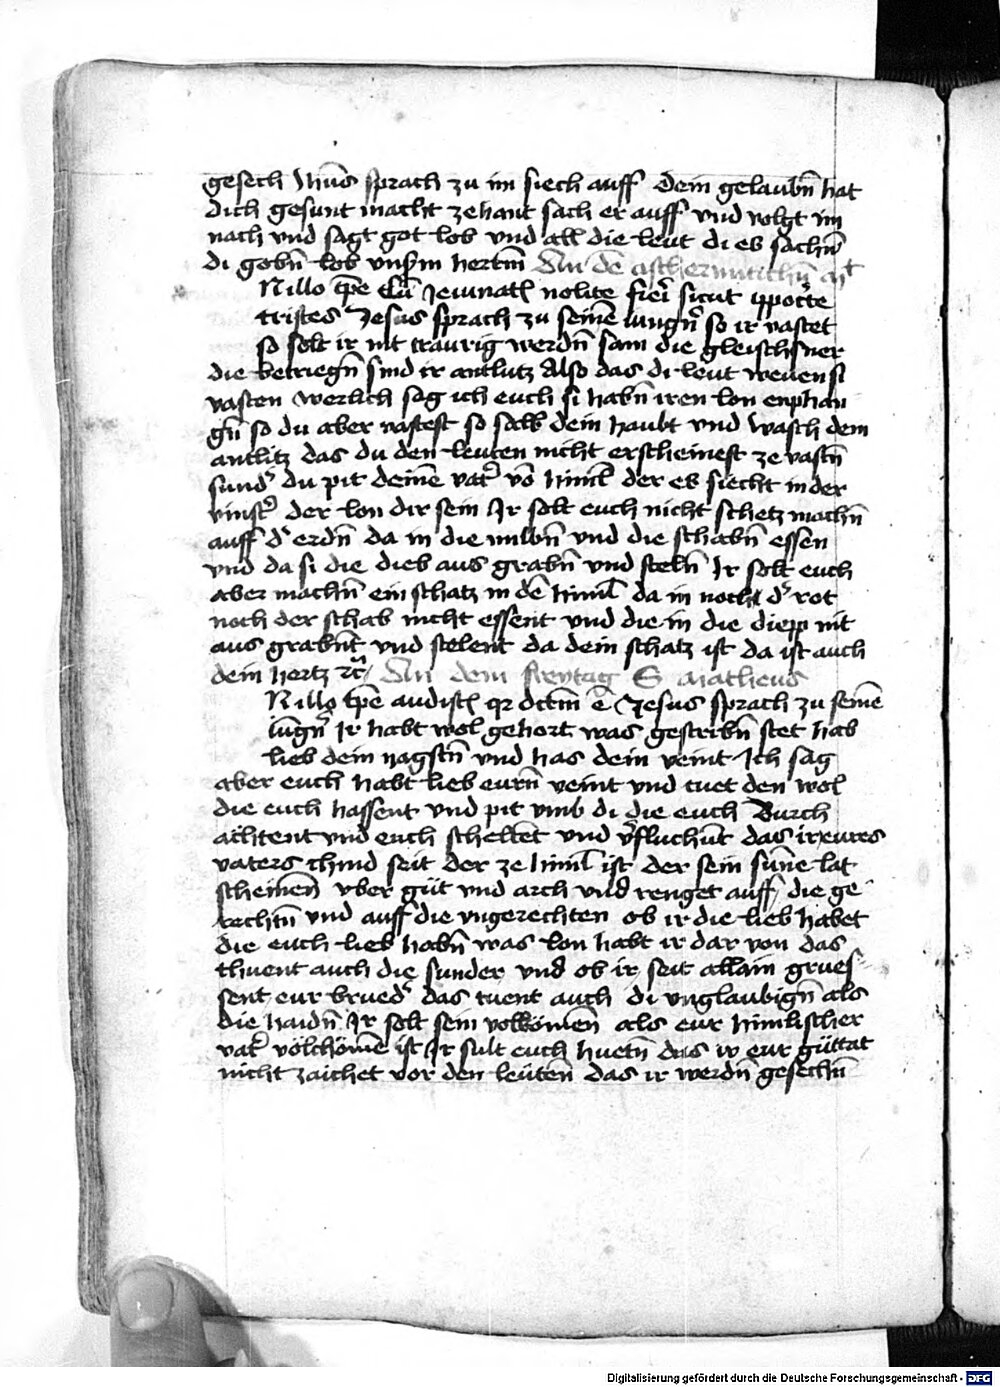 gesech Jhus sprach zu im siech auff Dein gelaubn̄ hat
dich gesunt macht zehant sach er auff vnd volgt im
nach vnd sagt got lob vnd all die leut di es sachn̄
di gobn̄ lob vnsm̄ hertm̄ An dē aschermitichn̄
N illo tp̄e Cū Jeiunatl nolite fieri sicut ÿpocrite
tristes Jesus sprach zu seinē iungn̄ so ir vastet
so solt ir nit traurig werdn̄ sam die gleischsner
die betriegn̄ sind ir antlutz Also das di leut wenen si
vasten werlich sag ich euch si habn̄ iren lon enphan
gn̄ so du aber vastest so salb dein haubt vnd wasch dem
antlitz das du den leuten nicht erscheinest ze vastn̄
sund' du pit deinē vat' vō himl der es siecht in der
vinst' der lon dir sein Jr solt euch nicht schetz machn̄
auff d' erdn̄ da in die milbn̄ vnd die schabn̄ essen
vnd da si die dieb aus grabn̄ vnd steln̄ Jr solt euch
aber machn̄ ein schatz in dē himl da in nocht d' rot
noch der schab nicht essent vnd die in die diepp nit
aus grabnt vnd stelent da dein schatz ist da ist auch
dein hertz rc̄ An dem freytag S matheus
N illo tp̄e audistl qr dictm̄ ē Jesus sprach zu seinē
iūgn̄ Jr habt wol gehort was gescribn̄ stet hab
lieb dein nagstn̄ vnd has dein veint Ich sag
aber euch habt lieb eurn̄ veint vnd tuet den wol
die euch hassent vnd pit vmb di die euch Durch
achtent vnd euch scheltet vnd v'fluchnt das ir eures
vaters chind seit der ze himl ist der sein sūne lat
scheinen vber gūt vnd arch vnd renget auff die ge
rechtn̄ vnd auff die vngerechten ob ir die lieb habet
die euch lieb habn̄ was lon habt ir dar von das
thuent auch die sunder vnd ob ir seit allain grues
sent eur brued' das tuent auch di vnglaubign̄ als
die haidn̄ Jr solt sein volkömen als eur himlischer
vat' völchömē ist Jr sult euch huetn̄ das ir eur güttat
nicht zaichet vor den leüten das ir werdn̄ gesechn̄
Digitalisierung gefördert durch die Deutsche Forschungsgemeinschaft - DFG